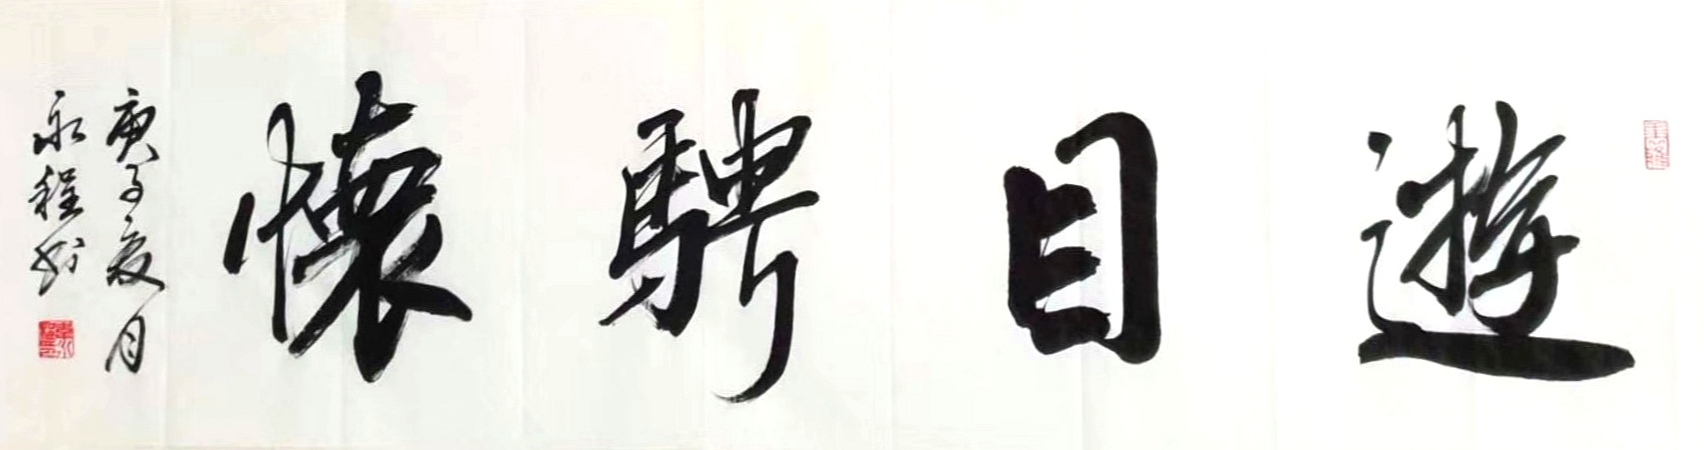 遊目騁懷
庚子夏月
永程书